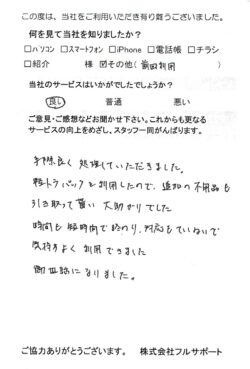 この度は、当社をご利用いただき有り難うございました。
何を見て当社を知りましたか?
□パソコン □スマートフォン □iPhone □電話帳 □チラシ
□紹介 様 ☑その他( 前回利用 )
当社のサービスはいかがでしたでしょうか?
良い 普通 悪い
ご意見・ご感想などお聞かせ下さい。これからも更なる
サービスの向上をめざし、スタッフ一同がんばります。
手際良く処理していただきました。
軽トラパックを利用したので、追加の不用品も
引き取って貰い大助かりでした
時間も短時間で終わり、対応もていねいで
気持ちよく利用できました
御世話になりました。
ご協力ありがとうございます。 株式会社フルサポート